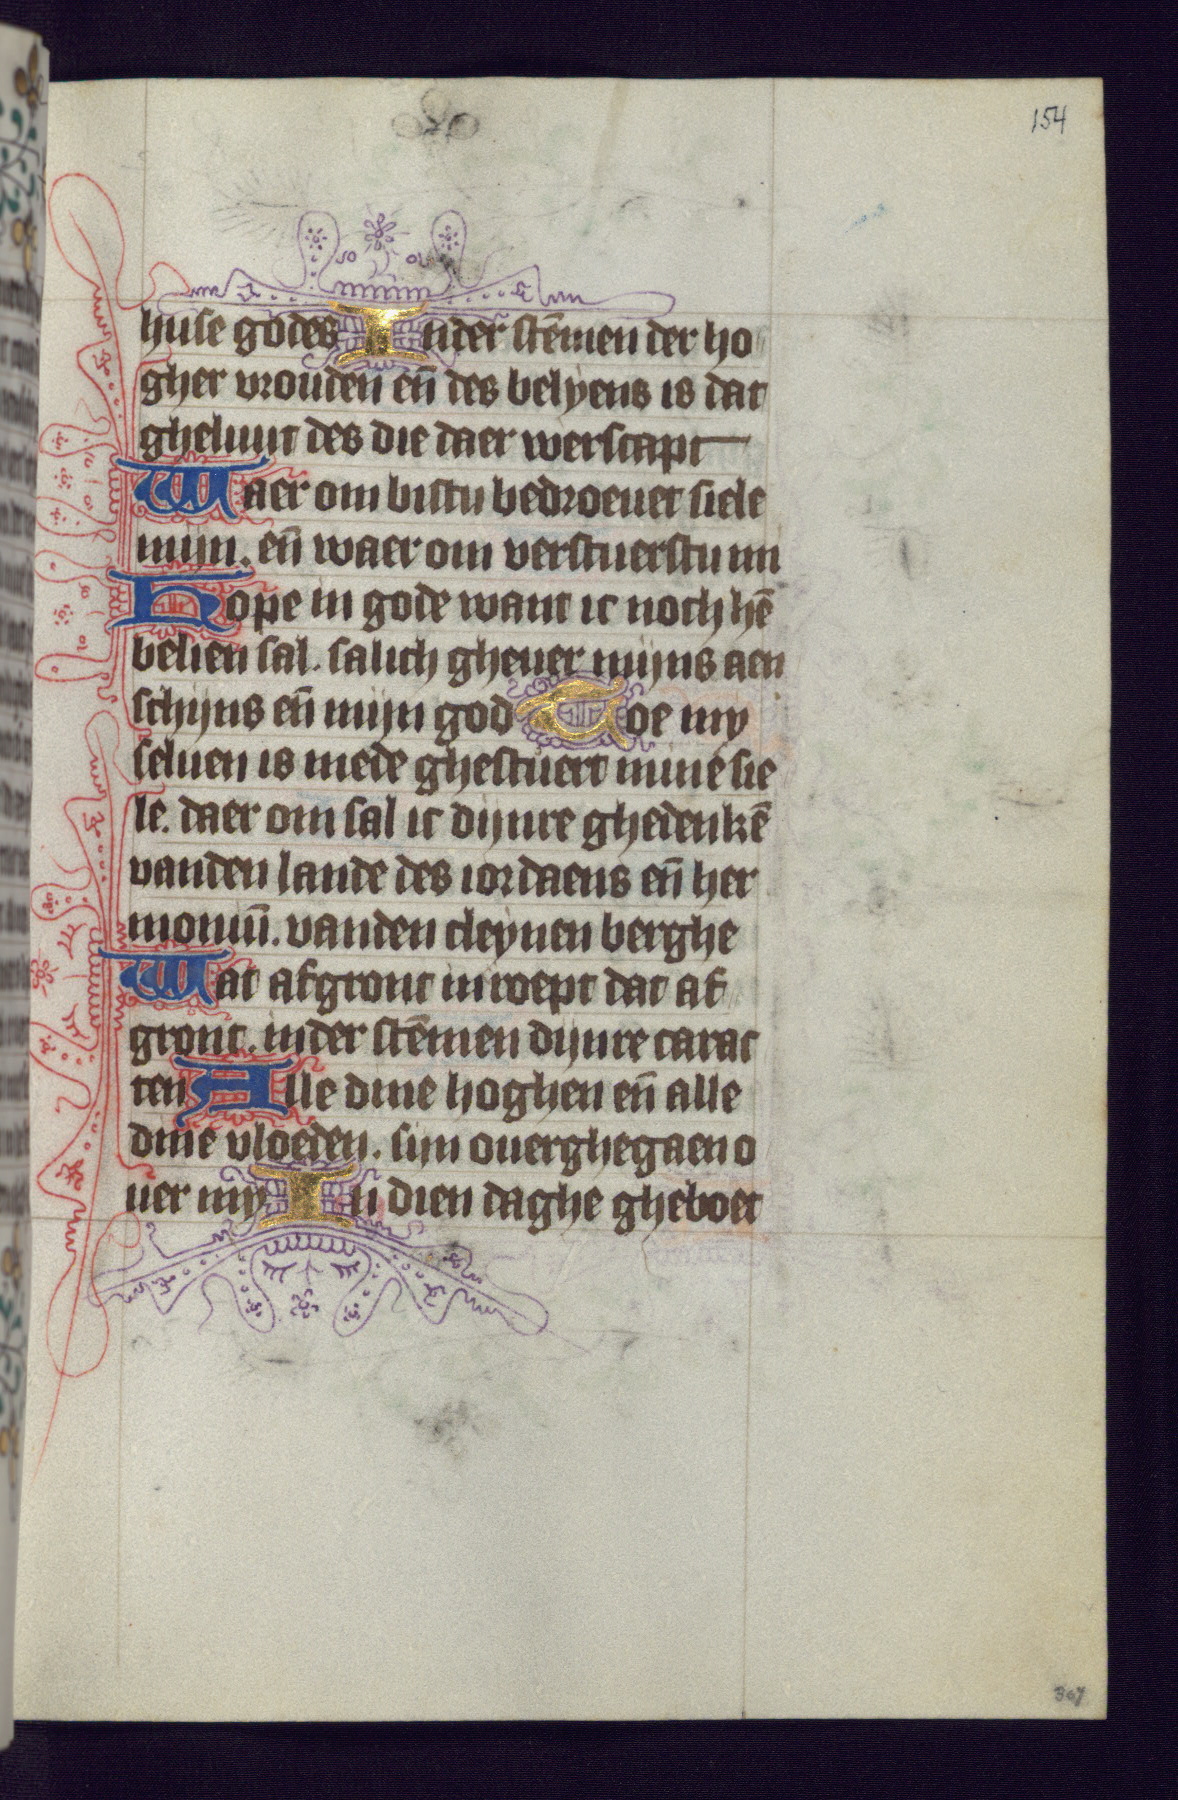 154
huse godes In der stēmen der ho
gher vrouden en̄ des belyens is dat
gheluut des die daer werscapt
Waer om bistu bedroeuet siele
mijn. en̄ waer om verstuerstu mi
Hope in gode want ic noch hē
belien sal. salich gheuer mijns aen
schijns en̄ mijn god Toe my
seluen is mede ghestuert mine sie
le. daer om sal ic dijnre ghedenkē
vanden lande des iordaens en̄ her
moniū. vanden cleynen berghe
Wat afgront in roept dat af
gront. inder stēmen dijnre catarac
ten Alle dine hoghen en̄ alle
dine vloeden. sijn ouerghegaen o
uer my In dien daghe gheboet
307